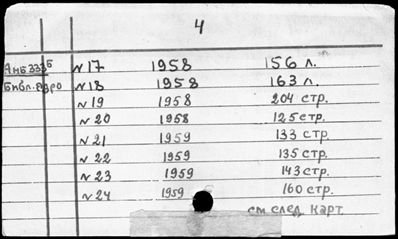 4
N17 1958 156 л.
N18 1958 163 л.
N19 1958 204 стр.
N20 1958 125 стр.
N21 1959 133 стр.
N22 1959 135 стр.
N23 1959 143 стр.
N24 1959 160 стр.
см. след. карт.